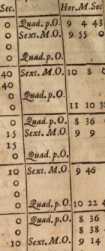 Sec. Hor.M.Sec
0 Quad. p.O. 9 4 48
0 Sext. M.O. 9 55 0
0
0 Quad. p.O.
40 Sext. M.O. 10 8 0
40
0 Quad. p.O.
0 11 10 3
0 Quad. p.O. 8 36
15 Sext. M.O. 9 9
15
0 Quad. p.O.
10 Sext. M.O. 9 46
0
0 Quad. p.O. 10 22 4
0 Quad. p.O. 8 36
0 8 58
10 Sext. M.O. 9 31